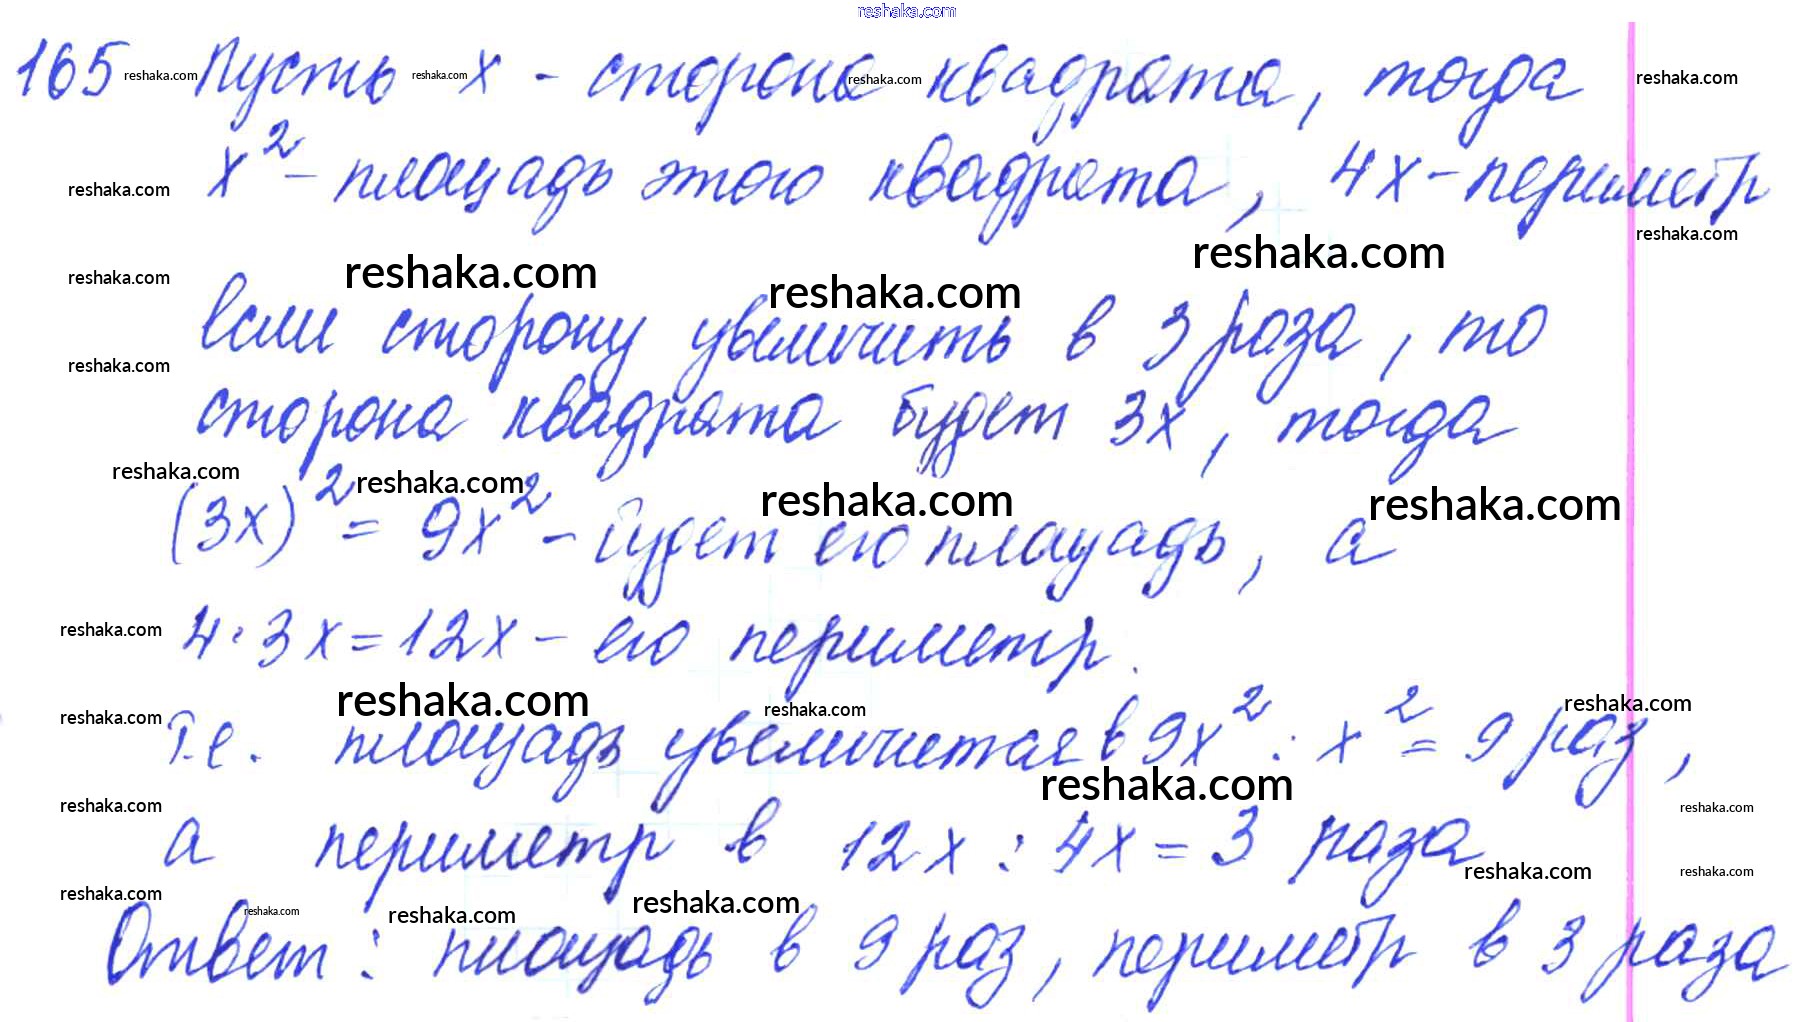 reshaka.com
165 reshaka.com Пусть reshaka.com х - сторона reshaka.com квадрата, тогда reshaka.com
reshaka.com х² - площадь этого квадрата, 4х - периметр
reshaka.com
reshaka.com reshaka.com reshaka.com reshaka.com
Если сторону увеличить в 3 раза, то
reshaka.com
сторона квадрата будет 3х, тогда
reshaka.com reshaka.com reshaka.com reshaka.com
(3х)² = 9х² - будет его площадь, а
reshaka.com 4·3х=12х - его периметр.
reshaka.com reshaka.com reshaka.com
reshaka.com Т.е. площадь увеличится в 9х² : х² = 9 раз,
reshaka.com
reshaka.com reshaka.com
а периметр в 12х : 4х = 3 раза
reshaka.com reshaka.com
reshaka.com reshaka.com reshaka.com reshaka.com
Ответ: площадь в 9 раз, периметр в 3 раза